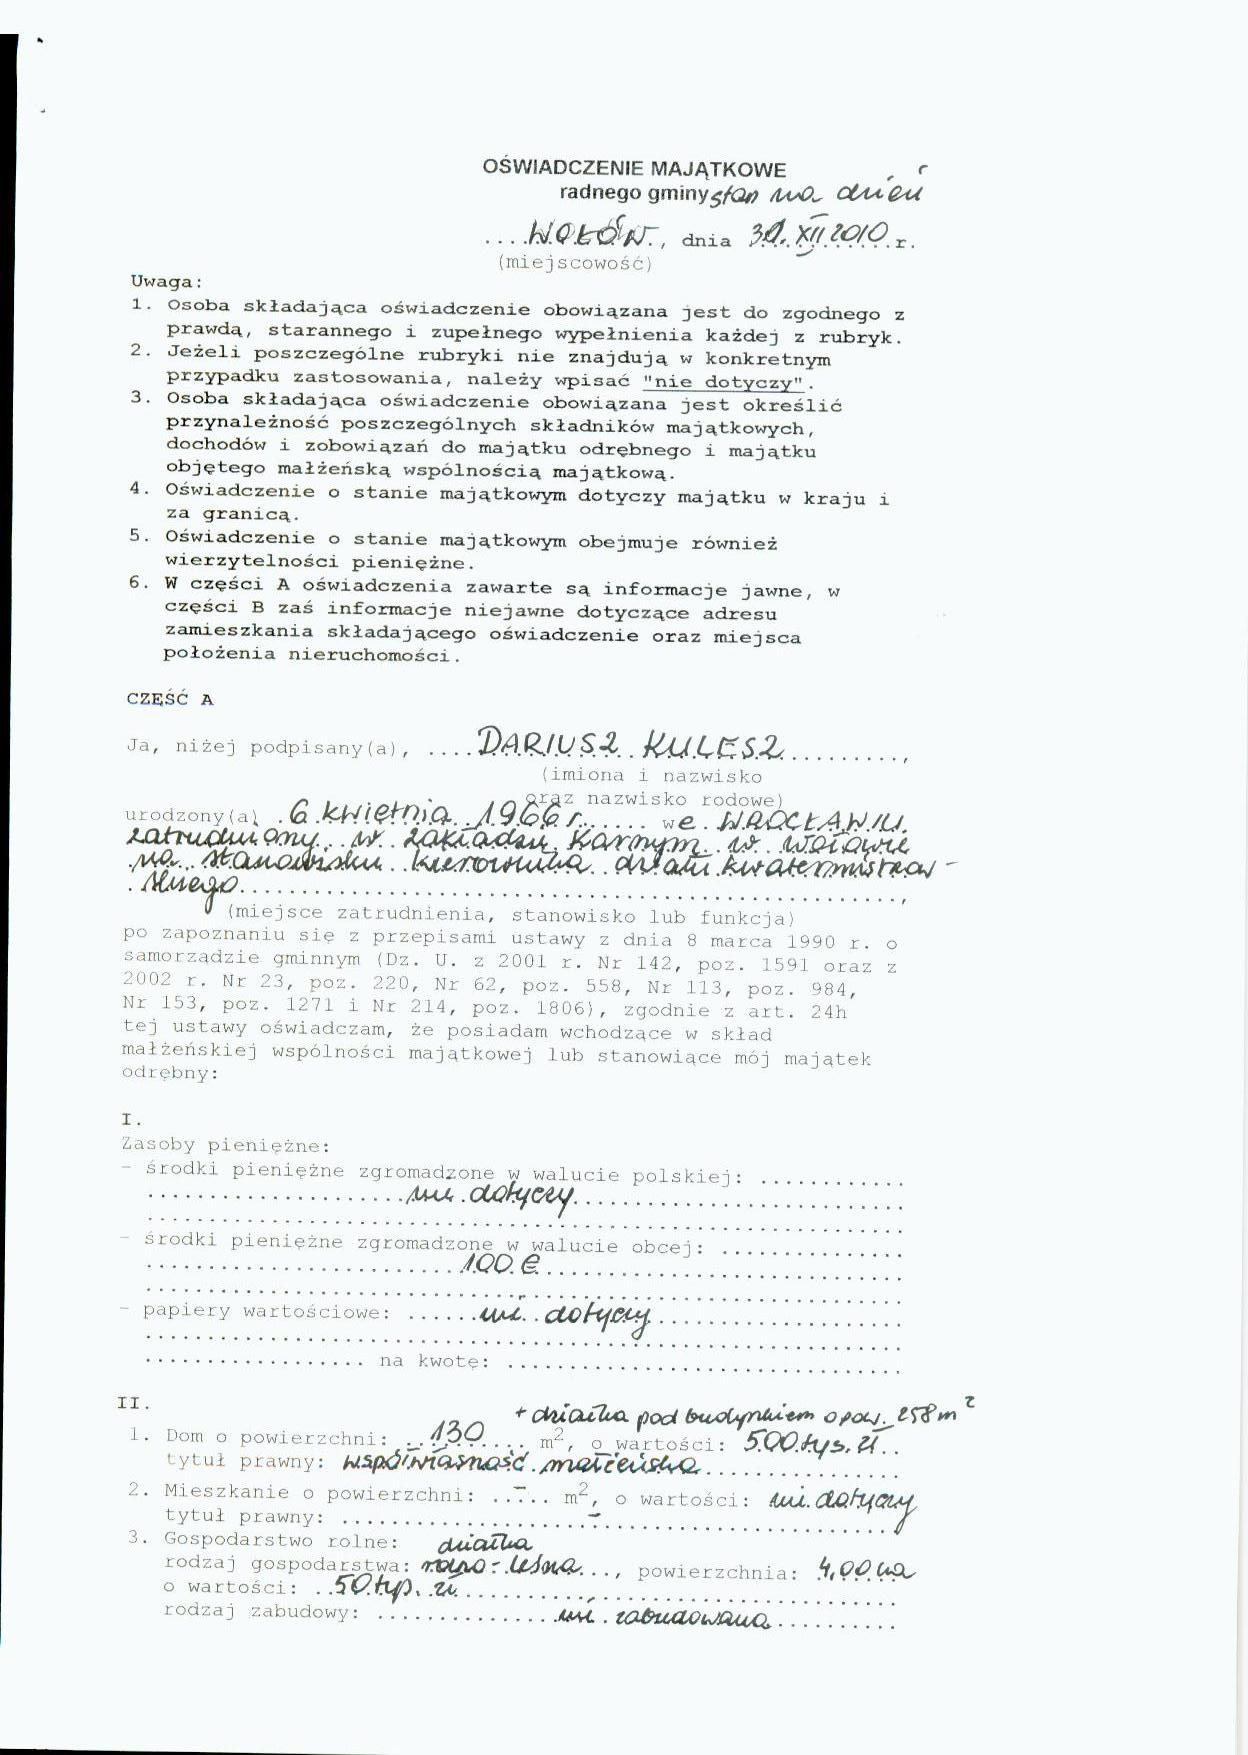 OŚWIADCZENIE MAJĄTKOWE
radnego gminy stan na dzień
....WOŁÓW., dnia 30.XII.2010.r.
(miejscowość)
Uwaga:
1. Osoba składająca oświadczenie obowiązana jest do zgodnego z
prawdą, starannego i zupełnego wypełnienia każdej z rubryk.
2. Jeżeli poszczególne rubryki nie znajdują w konkretnym
przypadku zastosowania, należy wpisać "nie dotyczy".
3. Osoba składająca oświadczenie obowiązana jest określić
przynależność poszczególnych składników majątkowych,
dochodów i zobowiązań do majątku odrębnego i majątku
objętego małżeńską wspólnością majątkową.
4. Oświadczenie o stanie majątkowym dotyczy majątku w kraju i
za granicą.
5. Oświadczenie o stanie majątkowym obejmuje również
wierzytelności pieniężne.
6. W części A oświadczenia zawarte są informacje jawne, w
części B zaś informacje niejawne dotyczące adresu
zamieszkania składającego oświadczenie oraz miejsca
położenia nieruchomości.
CZĘŚĆ A
Ja, niżej podpisany(a), ....DARIUSZ KULESZ..........,
(imiona i nazwisko
oraz nazwisko rodowe)
urodzony(a) 6 kwiętnia 1966 r....... we WROCŁAWIU.
zatrudniony w zakładzu Karnym w Wołowie
na stanowisku kierownika działu kwatermistrzow-
skiego..........,
(miejsce zatrudnienia, stanowisko lub funkcja)
po zapoznaniu się z przepisami ustawy z dnia 8 marca 1990 r. o
samorządzie gminnym (Dz. U. z 2001 r. Nr 142, poz. 1591 oraz z
2002 r. Nr 23, poz. 220, Nr 62, poz. 558, Nr 113, poz. 984,
Nr 153, poz. 1271 i Nr 214, poz. 1806), zgodnie z art. 24h
tej ustawy oświadczam, że posiadam wchodzące w skład
małżeńskiej wspólności majątkowej lub stanowiące mój majątek
odrębny:
I.
Zasoby pieniężne:
- środki pieniężne zgromadzone w walucie polskiej: ............
....................nie dotyczy..........................
- środki pieniężne zgromadzone w walucie obcej: ...............
.........................100 €............................
- papiery wartościowe: ......nie dotyczy....................
.................. na kwotę: ..............................
II.
+ działka pod budynkiem o pow. 258 m²
1. Dom o powierzchni: ..130.... m², o wartości: 500 tys. zł..
tytuł prawny: współwłasność małżeńska................
2. Mieszkanie o powierzchni: ..-.. m², o wartości: nie dotyczy
tytuł prawny: ....................-......................
3. Gospodarstwo rolne: działka
rodzaj gospodarstwa: rolno-leśna..., powierzchnia: 4,00 ha
o wartości: ..50 tys. zł...................................
rodzaj zabudowy: ..............nie zabudowana..........